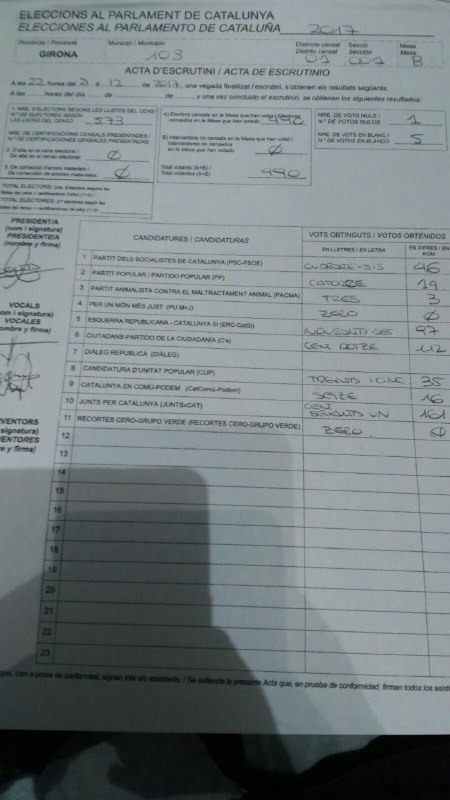 ELECCIONS AL PARLAMENT DE CATALUNYA
ELECCIONES AL PARLAMENTO DE CATALUÑA 2017
Província / Provincia Municipi / Municipio Districte censal Secció Mesa
Distrito censal Sección Mesa
GIRONA 103 01 001 B
ACTA D'ESCRUTINI / ACTA DE ESCRUTINIO
A les 22 hores del 21 d 12 de 2017, una vegada finalitzat l'escrutini, s'obtenen els resultats següents:
A las horas del día de de , y una vez concluido el escrutinio, se obtienen los siguientes resultados:
1. NRE. D'ELECTORS SEGONS LES LLISTES DEL CENS /
N.º DE ELECTORES SEGÚN
LAS LISTAS DEL CENSO 573
NRE. DE CERTIFICACIONS CENSALS PRESENTADES /
N.º DE CERTIFICACIONES CENSALES PRESENTADAS
2. D'alta en el cens electoral /
De alta en el censo electoral Ø
3. De correcció d'errors materials /
De corrección de errores materiales Ø
A) Electors censats en la Mesa que han votat / Electores
censados en la Mesa que han votado 490
B) Interventors no censats en la Mesa que han votat /
Interventores no censados
en la Mesa que han votado Ø
Total votants (A+B) /
Total votantes (A+B) 490
NRE. DE VOTS NULS /
N.º DE VOTOS NULOS 1
NRE. DE VOTS EN BLANC /
N.º DE VOTOS EN BLANCO 5
PRESIDENT/A
(nom i signatura)
PRESIDENTE/A
(nombre y firma)
VOCALS
(nom i signatura)
VOCALES
(nombre y firma)
CANDIDATURES / CANDIDATURAS VOTS OBTINGUTS / VOTOS OBTENIDOS
EN LLETRES / EN LETRA EN XIFRES / EN NÚM.
1 PARTIT DELS SOCIALISTES DE CATALUNYA (PSC-PSOE) QUARANTA-SIS 46
2 PARTIT POPULAR / PARTIDO POPULAR (PP) CATORZE 14
3 PARTIT ANIMALISTA CONTRA EL MALTRACTAMENT ANIMAL (PACMA) TRES 3
4 PER UN MÓN MÉS JUST (PUM+J) ZERO Ø
5 ESQUERRA REPUBLICANA - CATALUNYA SÍ (ERC-CatSí) NORANTA-SET 97
6 CIUTADANS-PARTIDO DE LA CIUDADANÍA (C's) CENT DOTZE 112
7 DIÀLEG REPUBLICÀ (DIÀLEG)
8 CANDIDATURA D'UNITAT POPULAR (CUP) TRENTA I CINC 35
9 CATALUNYA EN COMÚ-PODEM (CatComú-Podem) SETZE 16
10 JUNTS PER CATALUNYA (JUNTSxCAT) CENT SEIXANTA UN 161
11 RECORTES CERO-GRUPO VERDE (RECORTES CERO-GRUPO VERDE) ZERO Ø
12
13
14
15
16
17
18
19
20
21
22
23
que, com a prova de conformitat, signen tots els assistents. / Se extiende la presente Acta que, en prueba de conformidad, firman todos los